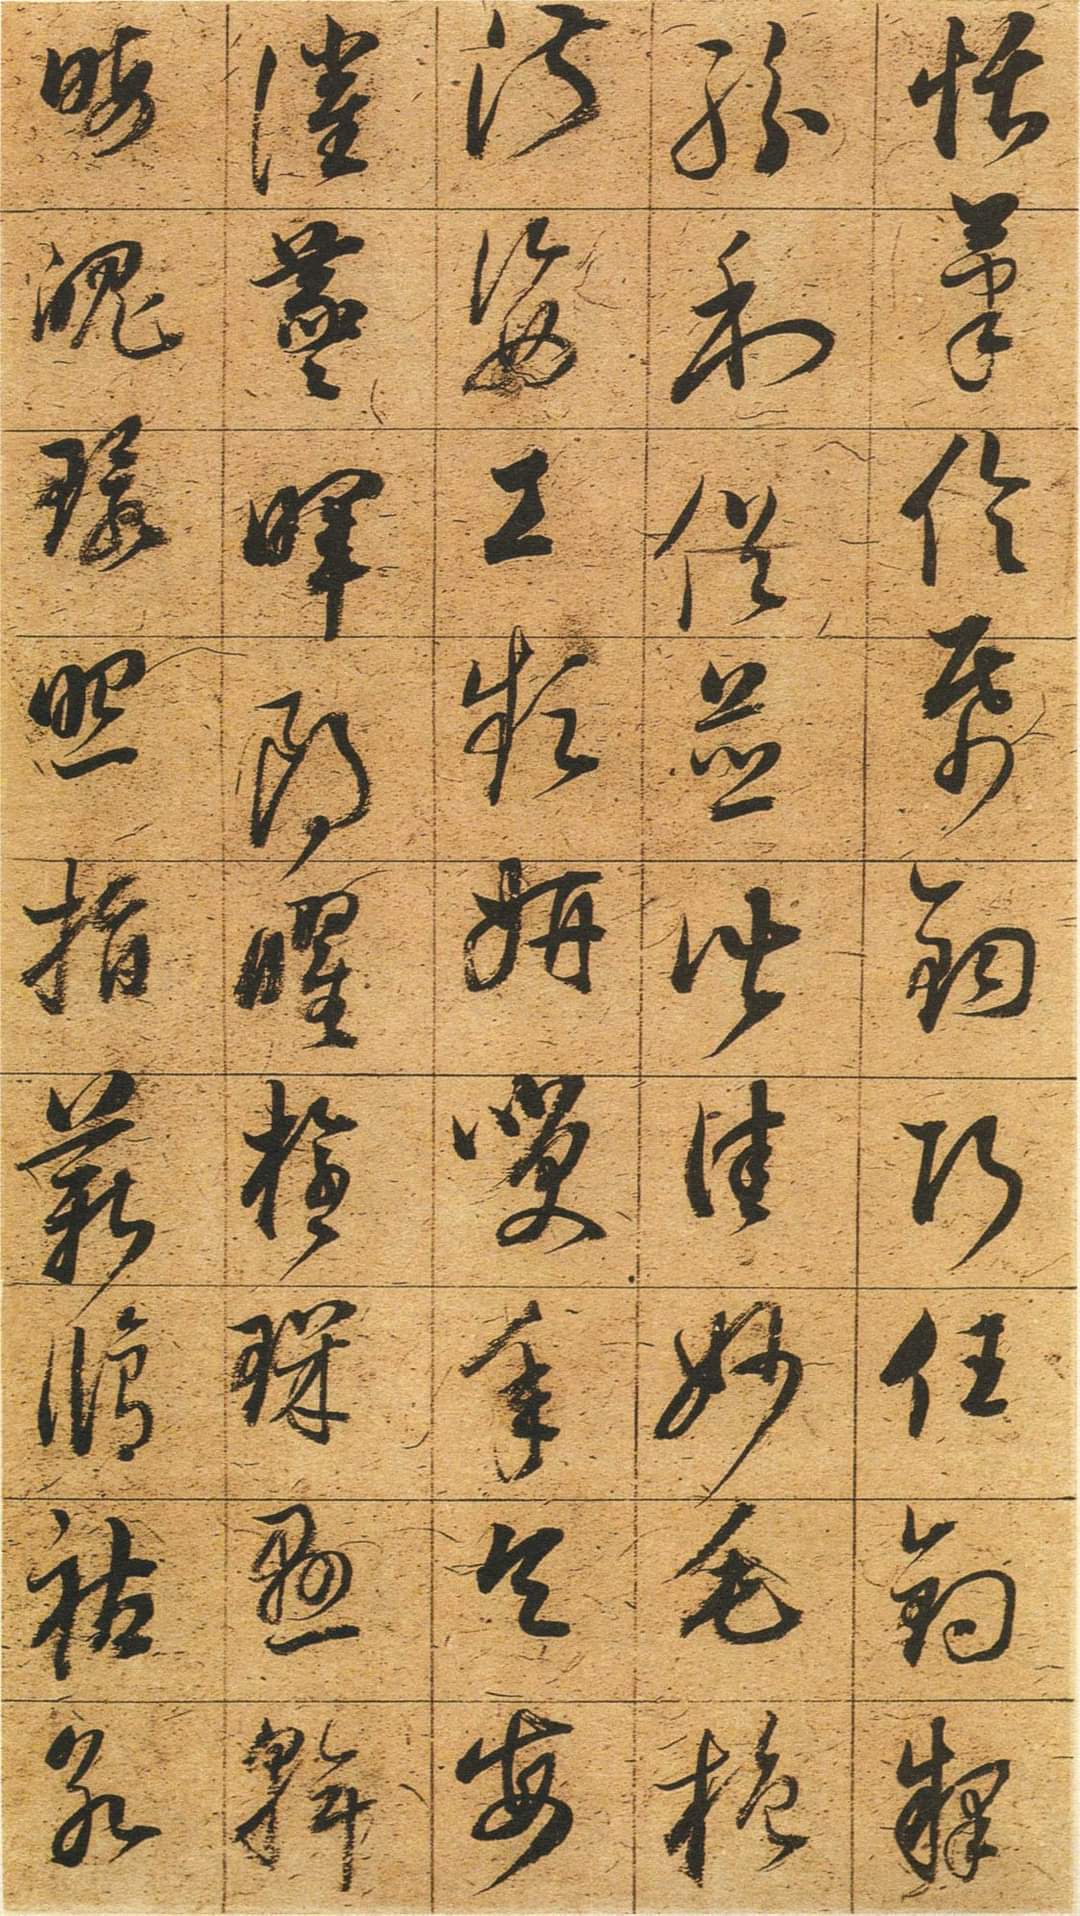 恬筆倫紙鈞巧任釣釋
紛利俗並皆佳妙毛施
淑姿工頻妍笑年矢每
催羲暉朗曜璇璣懸斡
晦魄環照指薪修祜永